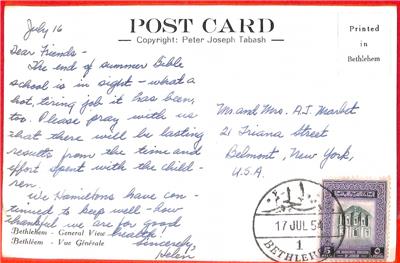 July 16
POST CARD
Copyright: Peter Joseph Tabash
Printed
in
Bethlehem
Dear Friends -
The end of summer Bible
school is in sight - what a
hot, tiring job it has been,
too. Please pray with us
that there will be lasting
results from the time and
effort spent with the child-
ren.
We Hamiltons have con-
tinued to keep well - how
thankful we are for good
health!
Sincerely,
Helen
Bethlehem - General View
Bethléem - Vue Générale
Mr. and Mrs. A.J.
21 Triana Street
Belmont, New York,
U.S.A.
17 JUL 54
1
BETHLEHEM
5
THE HASHEMITE KINGDOM
OF JORDAN